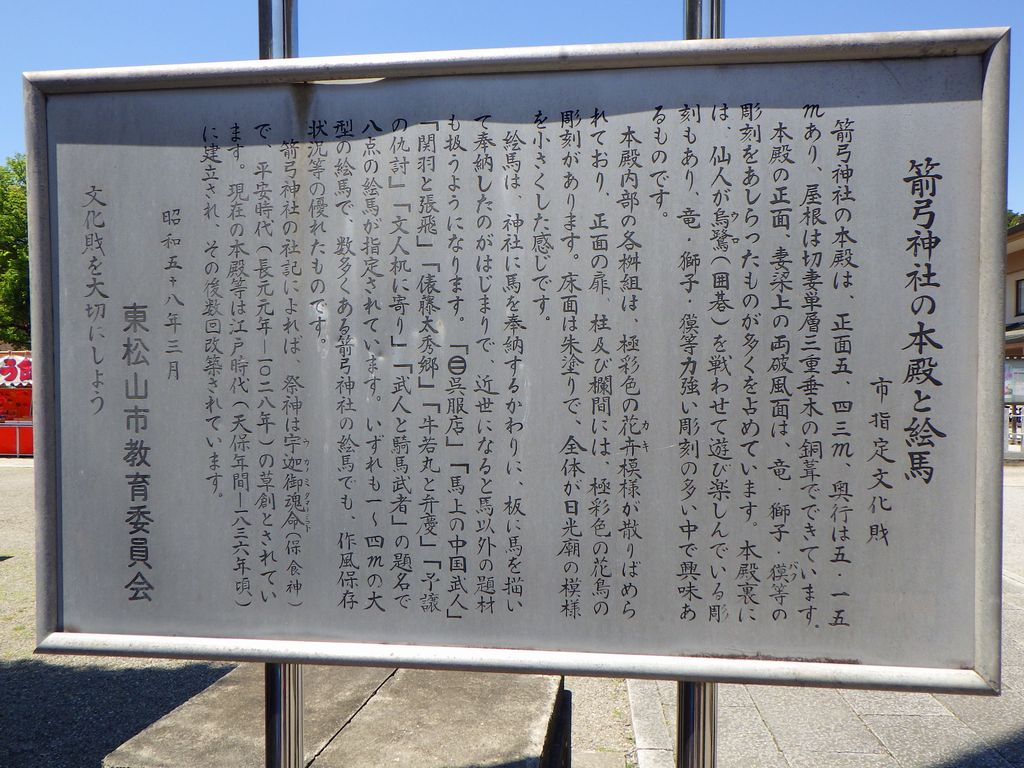 箭弓神社の本殿と絵馬
市指定文化財
箭弓神社の本殿は、正面五、四三m、奥行は五・一五
mあり、屋根は切妻単層三重垂木の銅葺でできています。
本殿の正面、妻梁上の両破風面は、竜・獅子・獏等の
バク
彫刻をあしらったものが多くを占めています。本殿裏に
は、仙人が烏鷺(囲碁)を戦わせて遊び楽しんでいる彫
ウロ
刻もあり、竜・獅子・獏等力強い彫刻の多い中で興味あ
るものです。
本殿内部の各桝組は、極彩色の花卉模様が散りばめら
カキ
れており、正面の扉、柱及び欄間には、極彩色の花鳥の
彫刻があります。床面は朱塗りで、全体が日光廟の模様
を小さくした感じです。
絵馬は、神社に馬を奉納するかわりに、板に馬を描い
て奉納したのがはじまりで、近世になると馬以外の題材
も扱うようになります。「㊀呉服店」「馬上の中国武人」
「関羽と張飛」「俵藤太秀郷」「牛若丸と弁慶」「予譲
の仇討」「文人机に寄り」「武人と騎馬武者」の題名で
八点の絵馬が指定されています。いずれも一〜四mの大
型の絵馬で、数多くある箭弓神社の絵馬でも、作風保存
状況等の優れたものです。
箭弓神社の社記によれば、祭神は宇迦御魂命(保食神)
ウカミタマノミコト
で、平安時代(長元元年―一〇二八年)の草創とされてい
ます。現在の本殿等は江戸時代(天保年間―一八三六年頃)
に建立され、その後数回改築されています。
昭和五十八年三月
東松山市教育委員会
文化財を大切にしよう